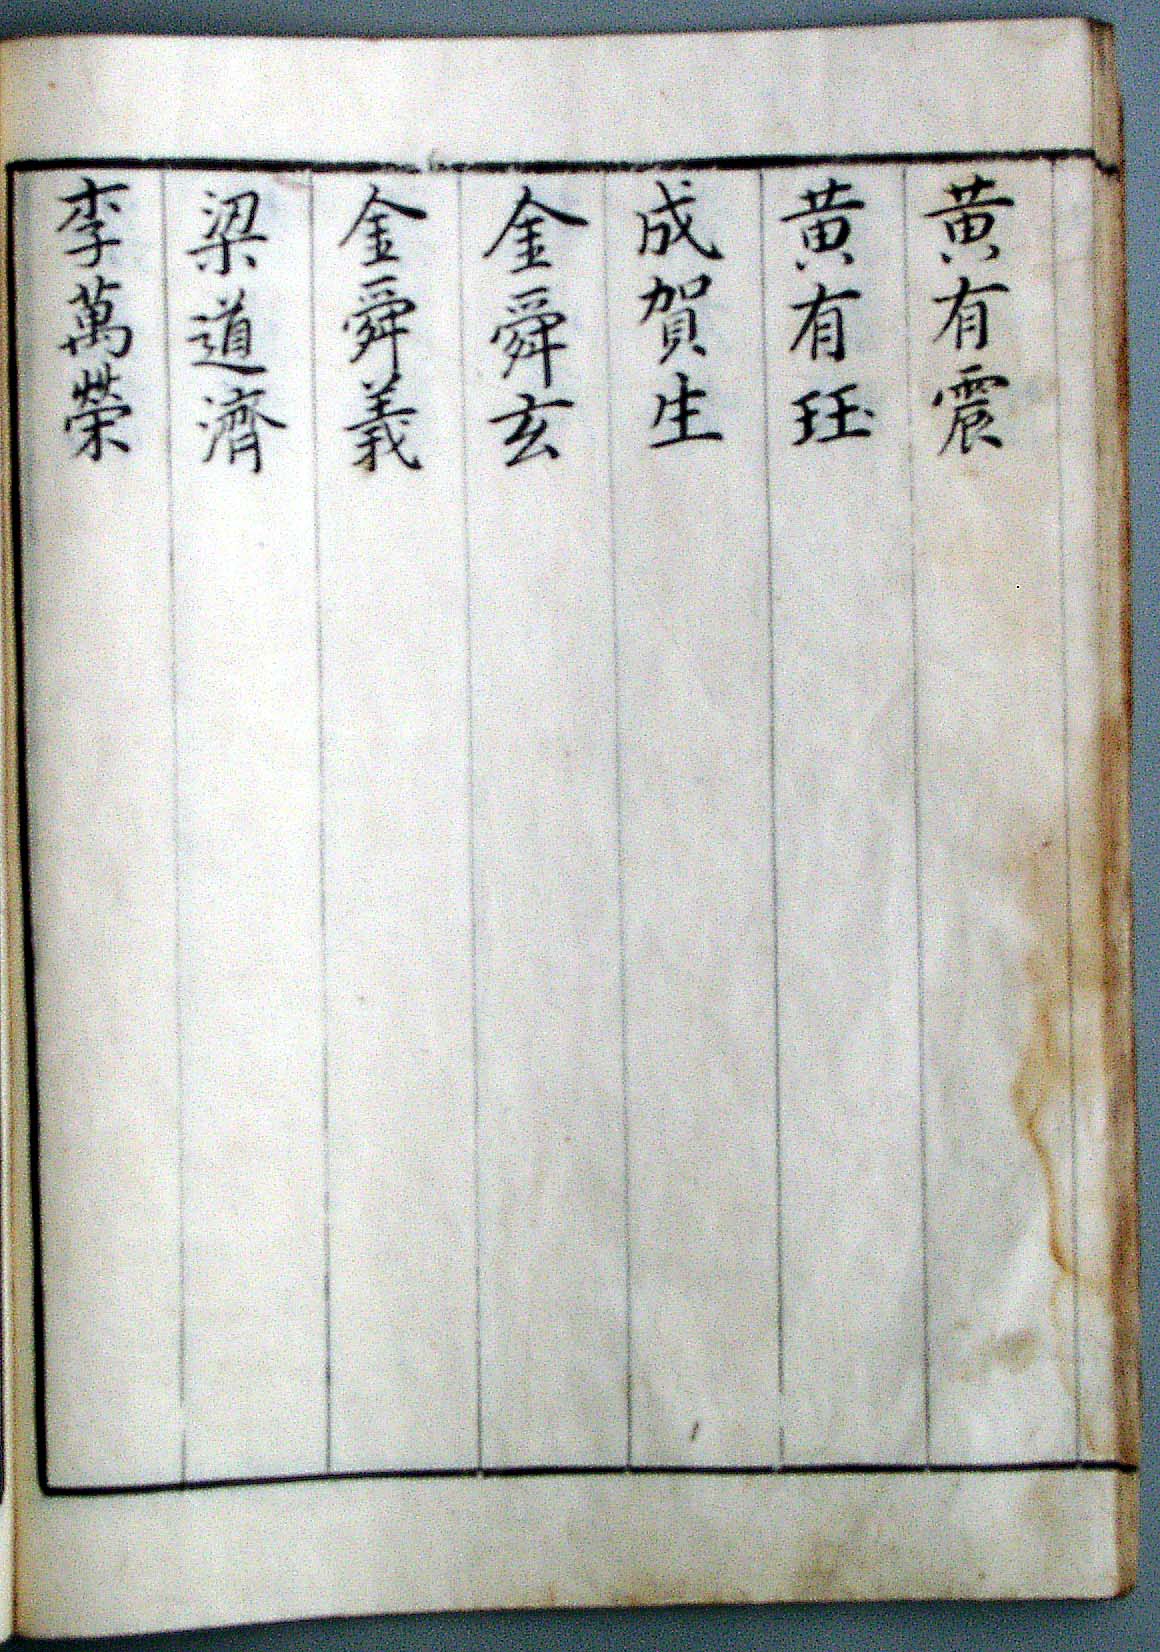 黄有震
黄有珏
成賀生
金舜玄
金舜義
梁道濟
李萬榮